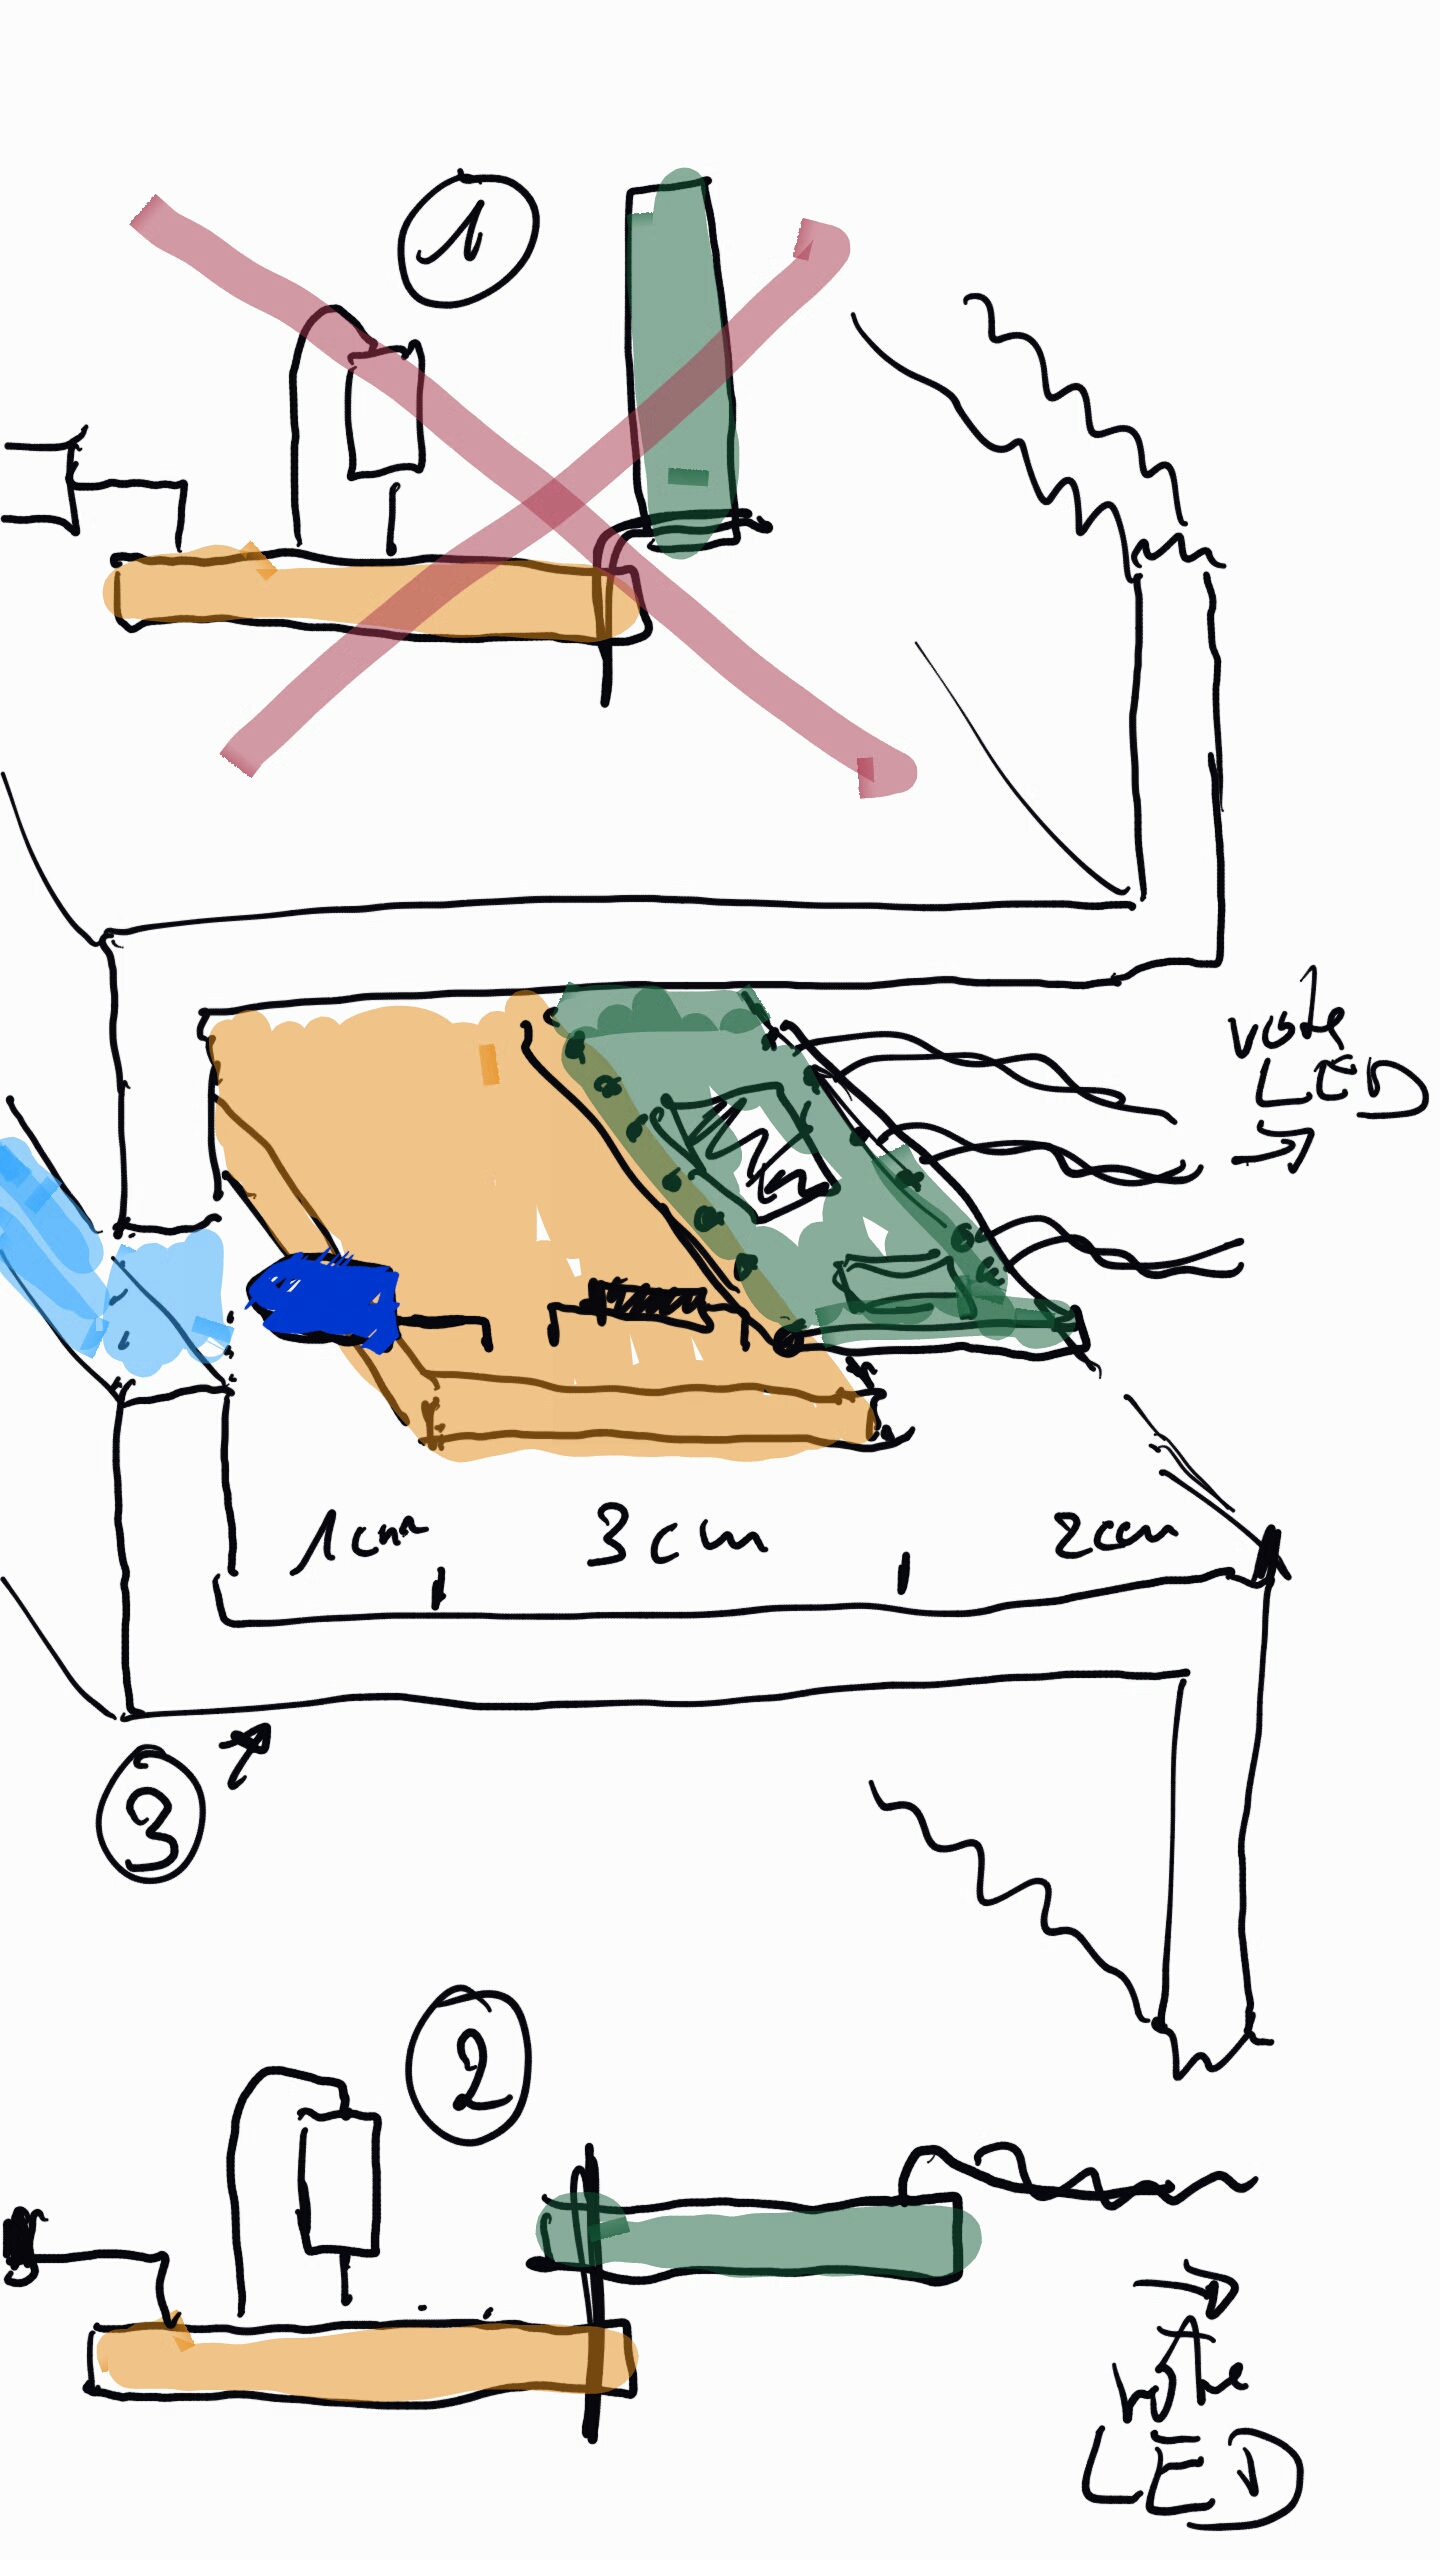 1
vote
LED
1cm 3cm 2cm
3
2
rote
LED